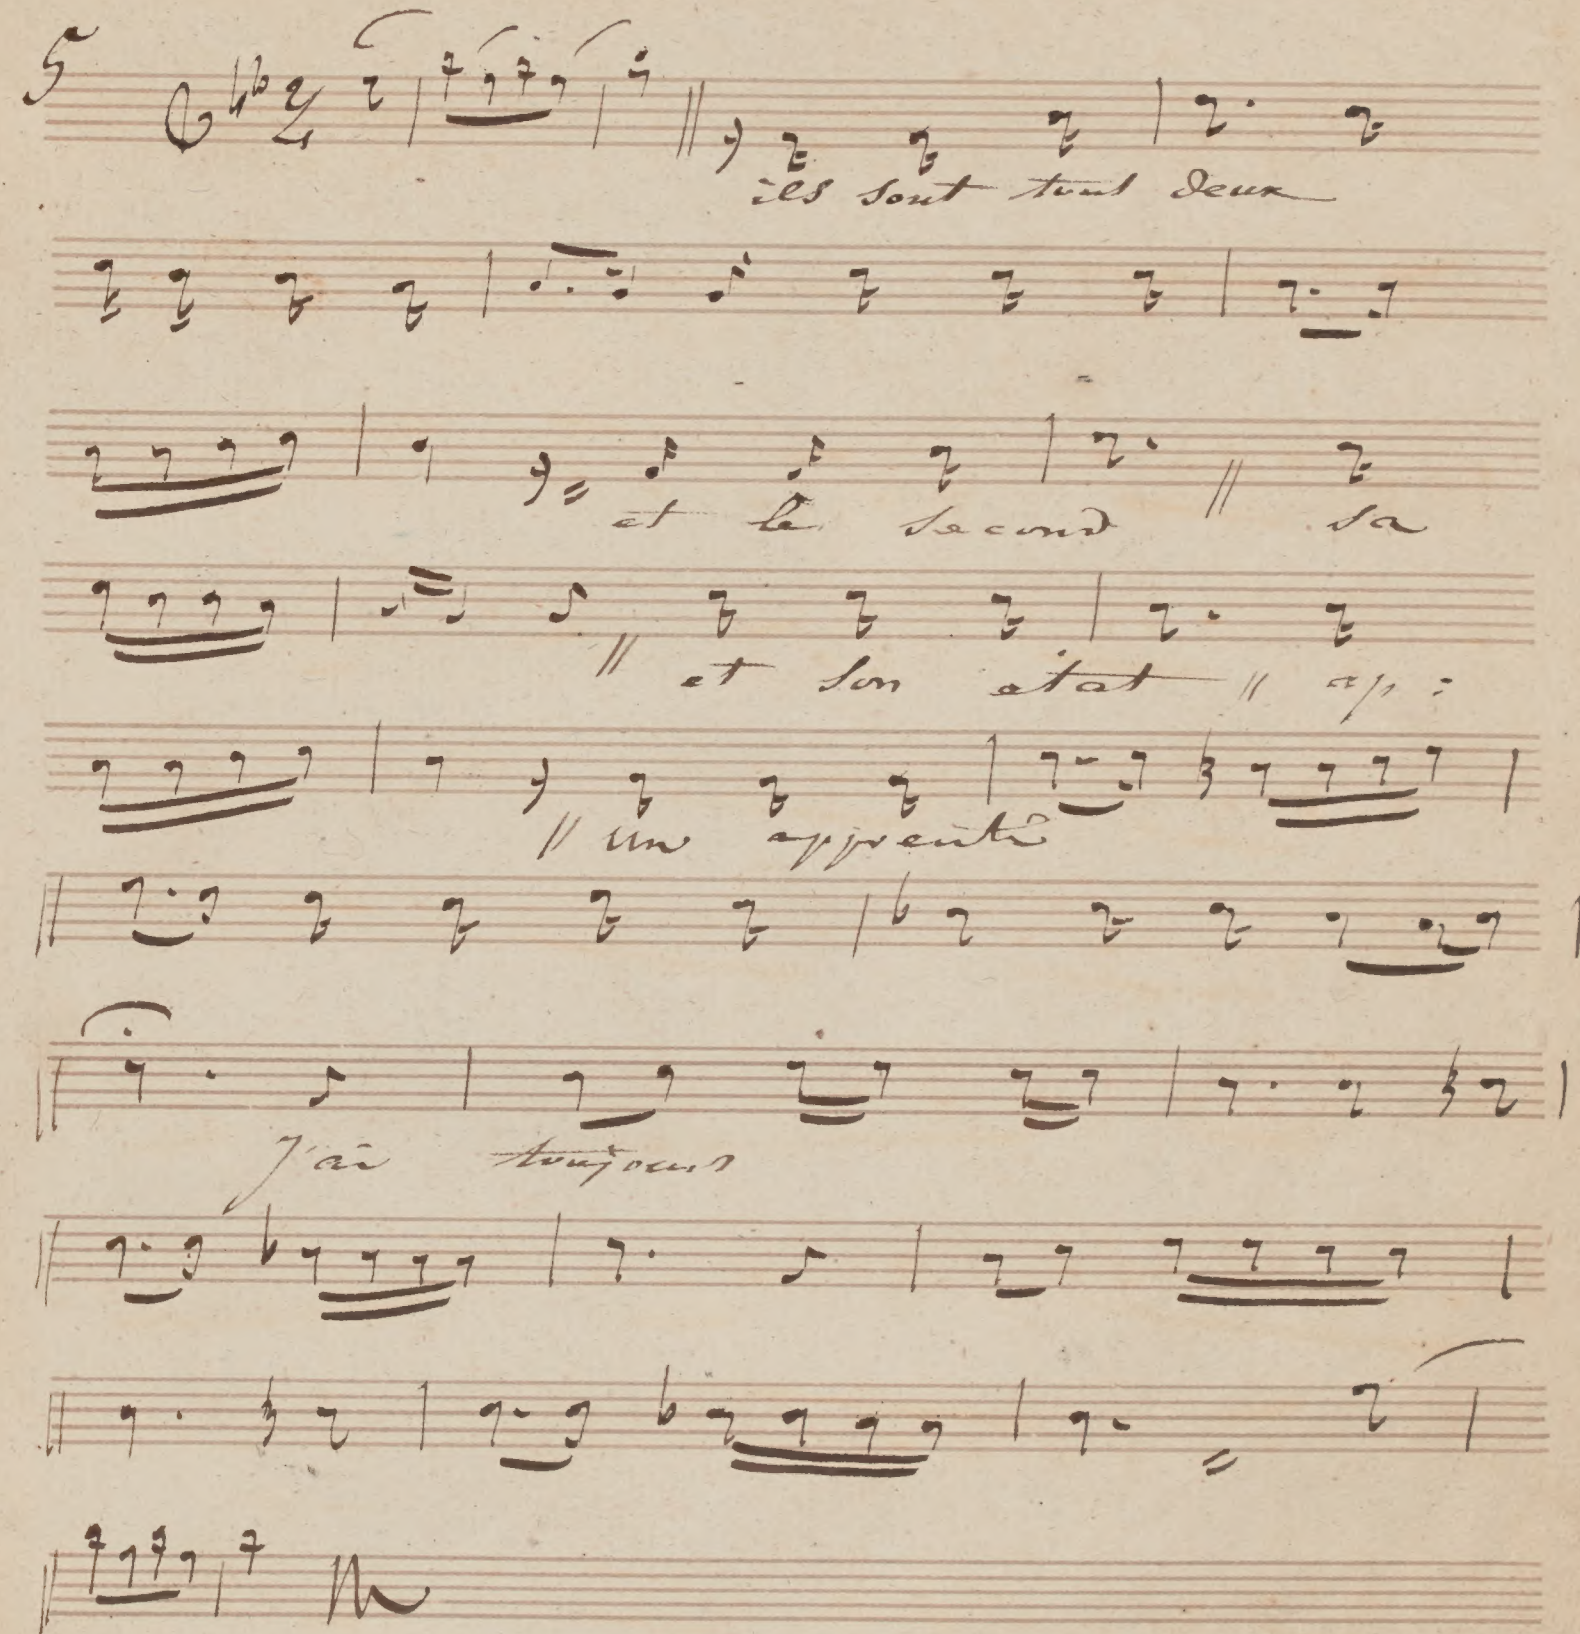 5
2/4
ils sont tous deux
et le second // sa
// et son état // ap :
// un apprenti
J'ai toujours